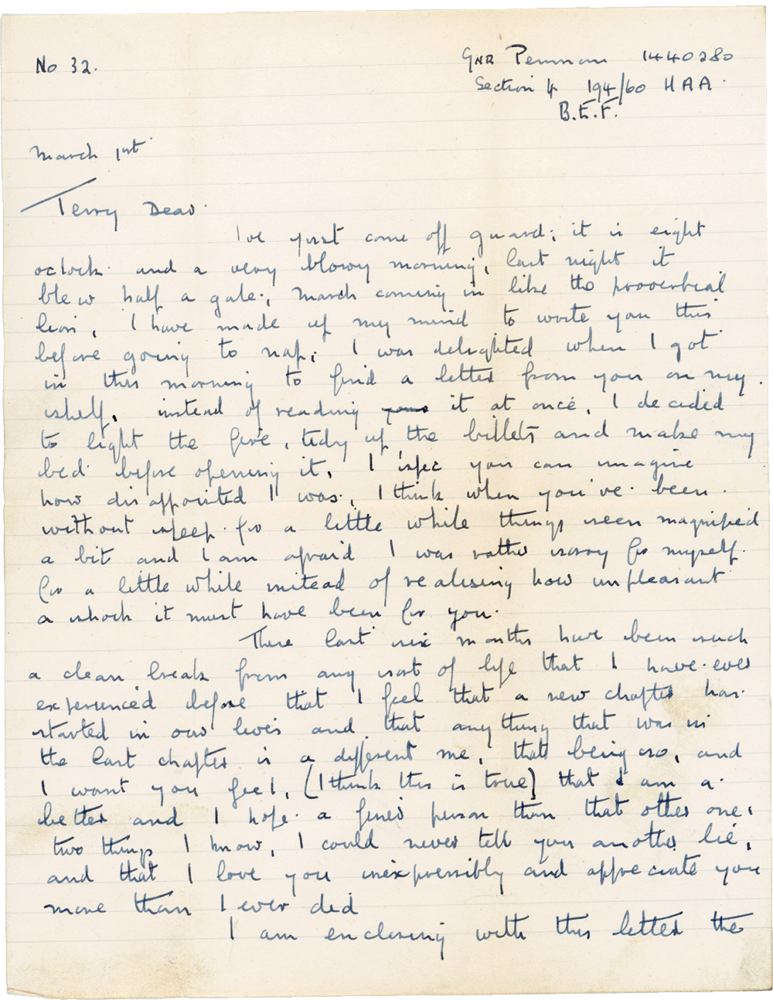 No 32.
GNR Penman 1440280
Section 4 194/60 HAA.
B.E.F.
March 1st
Terry Dear.
I've just come off guard; it is eight
oclock. and a very blowy morning, last night it
blew half a gale; March coming in like the proverbial
lion, I have made up my mind to write you this
before going to nap; I was delighted when I got
in this morning to find a letter from you on my
shelf, instead of reading yours it at once, I decided
to light the fire, tidy up the billets and make my
bed before opening it, I you can imagine
how disappointed I was, I think when you've been
without sleep for a little while things seem magnified
a bit and I am afraid I was rather sorry for myself
for a little while instead of realising how unpleasant
a shock it must have been for you.
These last six months have been such
a clean break from any sort of life that I have ever
experienced before that I feel that a new chapter has
started in our lives and that anything that was in
the last chapter is a different me, that being so, and
I want you feel, (I think this is true) that I am a
better and I hope a finer person than that other one,
two things I know, I could never tell you another lie,
and that I love you inexpressibly and appreciate you
more than I ever did
I am enclosing with this letter the